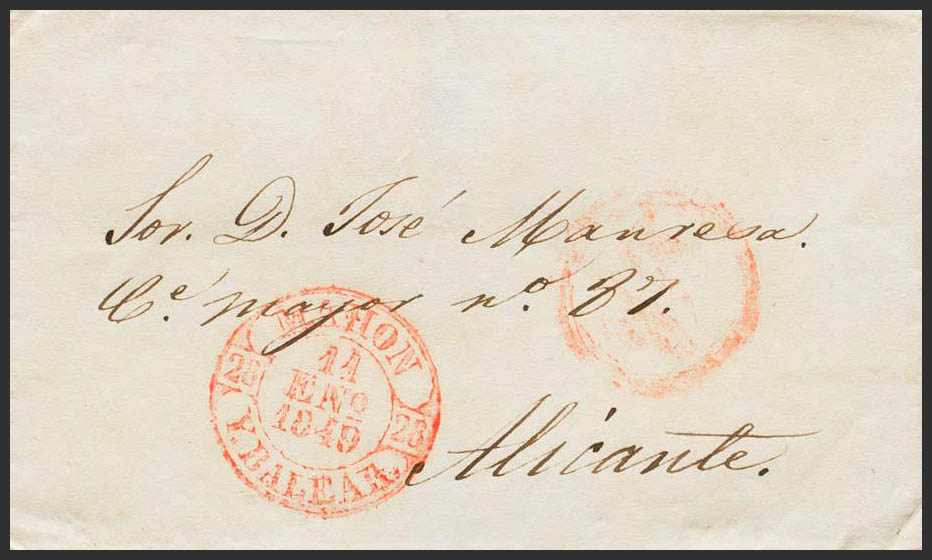 Sor. D. José Manresa.
Ce. mayor no. 37.
Alicante.
MAHON
28 28
11
ENO
1849
I. BALEAR.